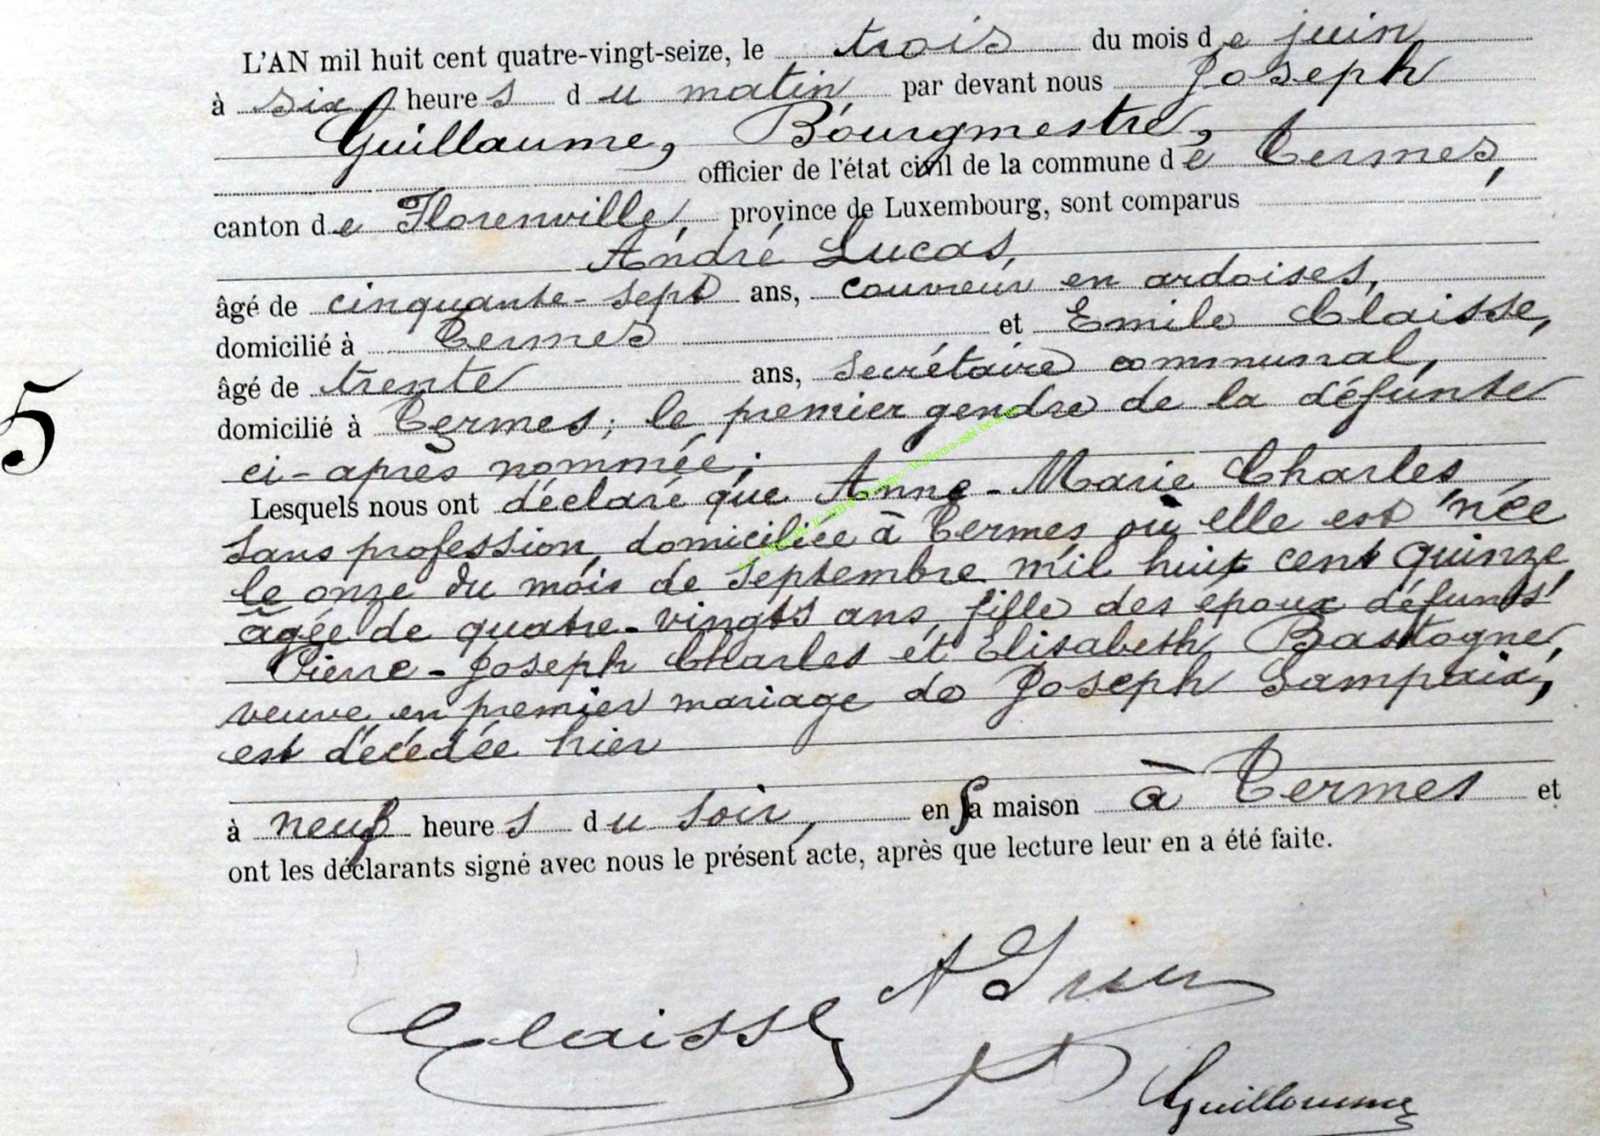 L'AN mil huit cent quatre-vingt-seize, le trois du mois de juin
à six heures du matin par devant nous Joseph
Guillaume, Bourgmestre,
officier de l'état civil de la commune de Termes,
canton de Florenville, province de Luxembourg, sont comparus
André Lucas,
âgé de cinquante-sept ans, couvreur en ardoises,
domicilié à Termes et Emile Claisse,
âgé de trente ans, secrétaire communal,
domicilié à Termes; le premier gendre de la défunte
ci-après nommée;
5
Lesquels nous ont déclaré que Anne-Marie Charles
sans profession, domiciliée à Termes où elle est née
le onze du mois de septembre mil huit cent quinze
âgée de quatre-vingts ans, fille des époux défunts
Pierre-Joseph Charles et Elisabeth Bastogne,
veuve en premier mariage de Joseph Sampaix,
est décédée hier
à neuf heures du soir, en sa maison à Termes et
ont les déclarants signé avec nous le présent acte, après que lecture leur en a été faite.
Claisse
Guillaume